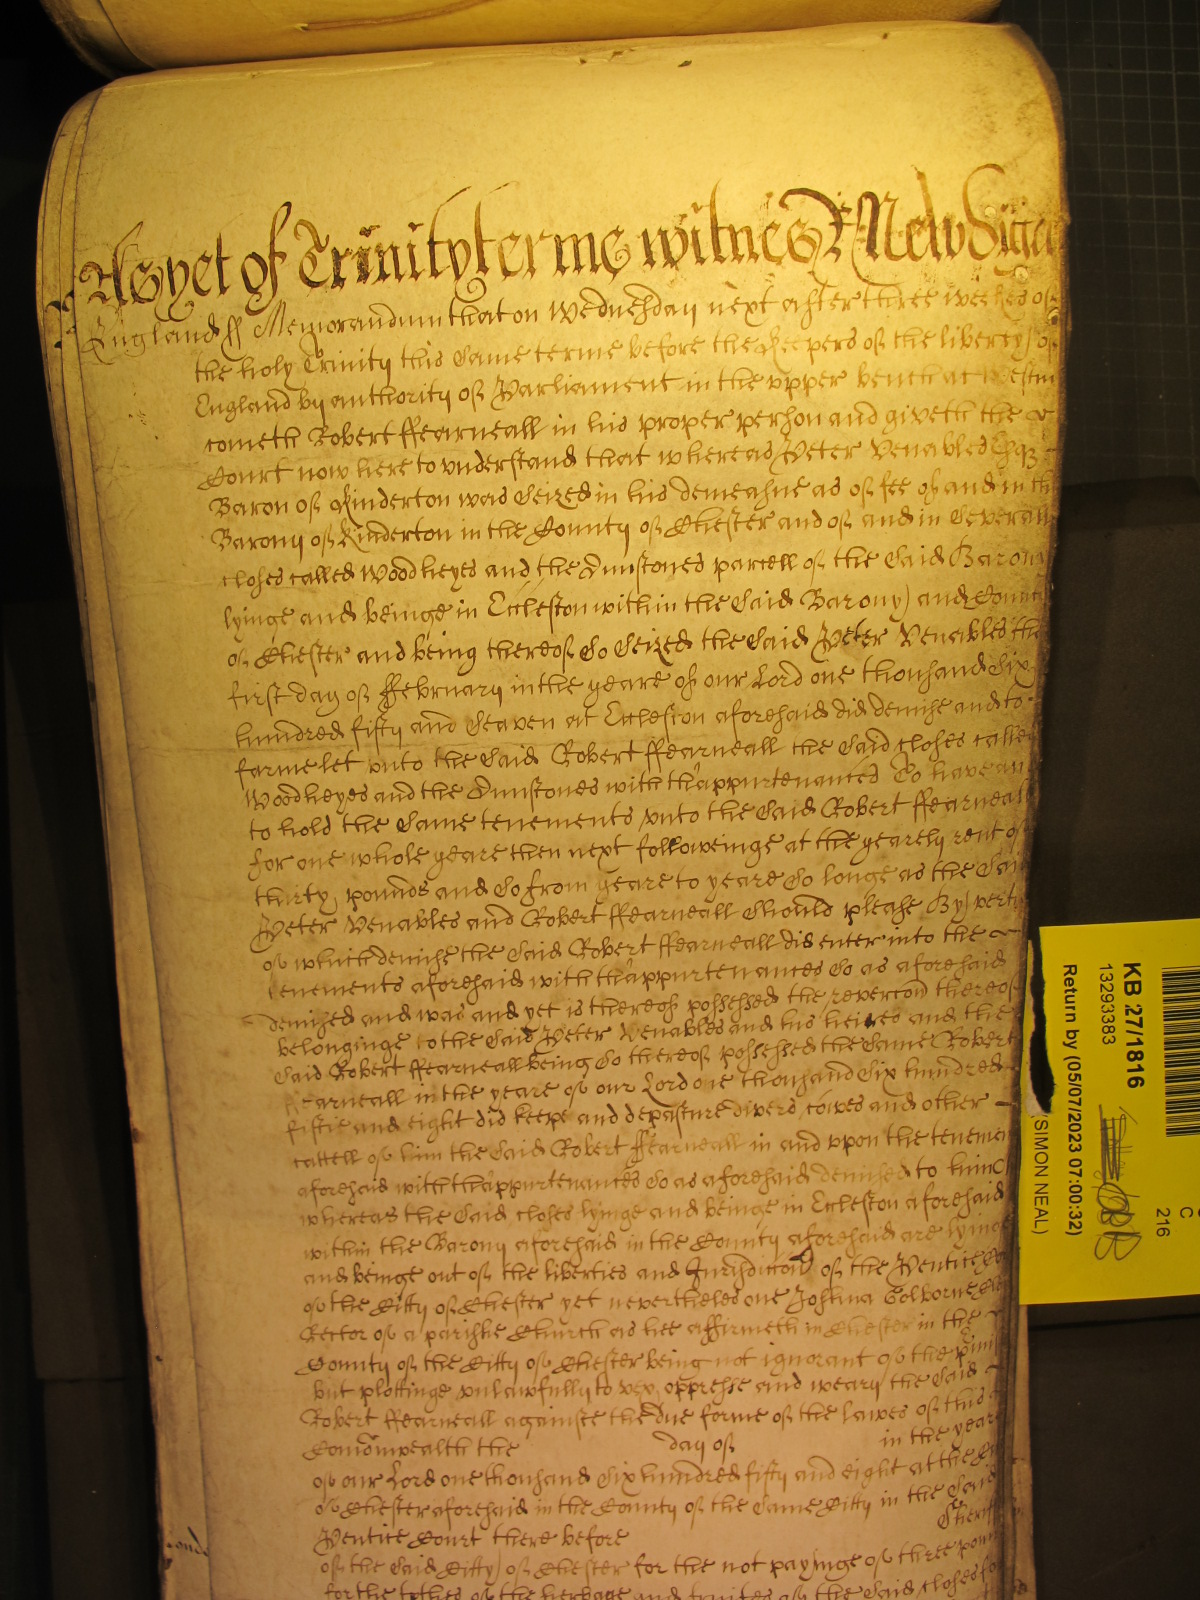 As yet of Trinity terme witnes R Newdiga
England ss Memorandum that on Wednesday next after three weekes of
the holy Trinity this same terme before the Keepers of the liberty of
England by authority of Parliament in the upper bench at Westm
cometh Robert ffearneall in his proper person and giveth the
Court now here to understand that whereas Peter Venables Esqr
Baron of Kinderton was seized in his demeasne as of fee of and in the
Barony of Kinderton in the County of Chester and of and in severall
closes called Woodheyes and the Dunstones parcell of the said Barony
lyinge and beinge in Eccleston within the said Barony and County
of Chester and being thereof so seized the said Peter Venables the
first day of ffebruary in the yeare of our Lord one thousand six
hundred fifty and seaven at Eccleston aforesaid did demise and to
farme let unto the said Robert ffearneall the said closes called
Woodheyes and the Dunstones with th'appurtenances To have and
to hold the same tenements unto the said Robert ffearneall
for one whole yeare then next followeinge at the yearely rent of
thirty pounds and so from yeare to yeare so longe as the said
Peter Venables and Robert ffearneall should please By vertue
of which demise the said Robert ffearneall did enter into the
tenements aforesaid with th'appurtenances so as aforesaid
demised and was and yet is thereof possessed the revercon thereof
belonginge to the said Peter Venables and his heires and the
said Robert ffearneall being so thereof possessed the same Robert
ffearneall in the yeare of our Lord one thousand six hundred
fiftie and eight did keepe and depasture divers cowes and other
cattell of him the said Robert ffearneall in and upon the tenemen
aforesaid with th'appurtenances so as aforesaid demised to him
whereas the said closes lyinge and beinge in Eccleston aforesaid
within the Barony aforesaid in the County aforesaid are lyinge
and beinge out of the liberties and Jurisdiccon of the Pentice
of the Citty of Chester yet neverthelesse one Joshua Golborne
Rector of a parishe Church as hee affirmeth in Chester in the
County of the Citty of Chester being not ignorant of the
but plottinge unlawfully to vex oppresse and weary the said
Robert ffearneall againste the due forme of the lawes of this
Comonwealth the day of in the yeare
of our Lord one thousand six hundred fifty and eight at the
of Chester aforesaid in the County of the same Citty in the said
Pentice Court there before Sheriff
of the said Citty of Chester for the not payinge of three pounds
for the tythes of the herbage and fruites of the said closes
KB 27/1816
13293383
Return by (05/07/2023 07:00:32)
(SIMON NEAL)
C
216